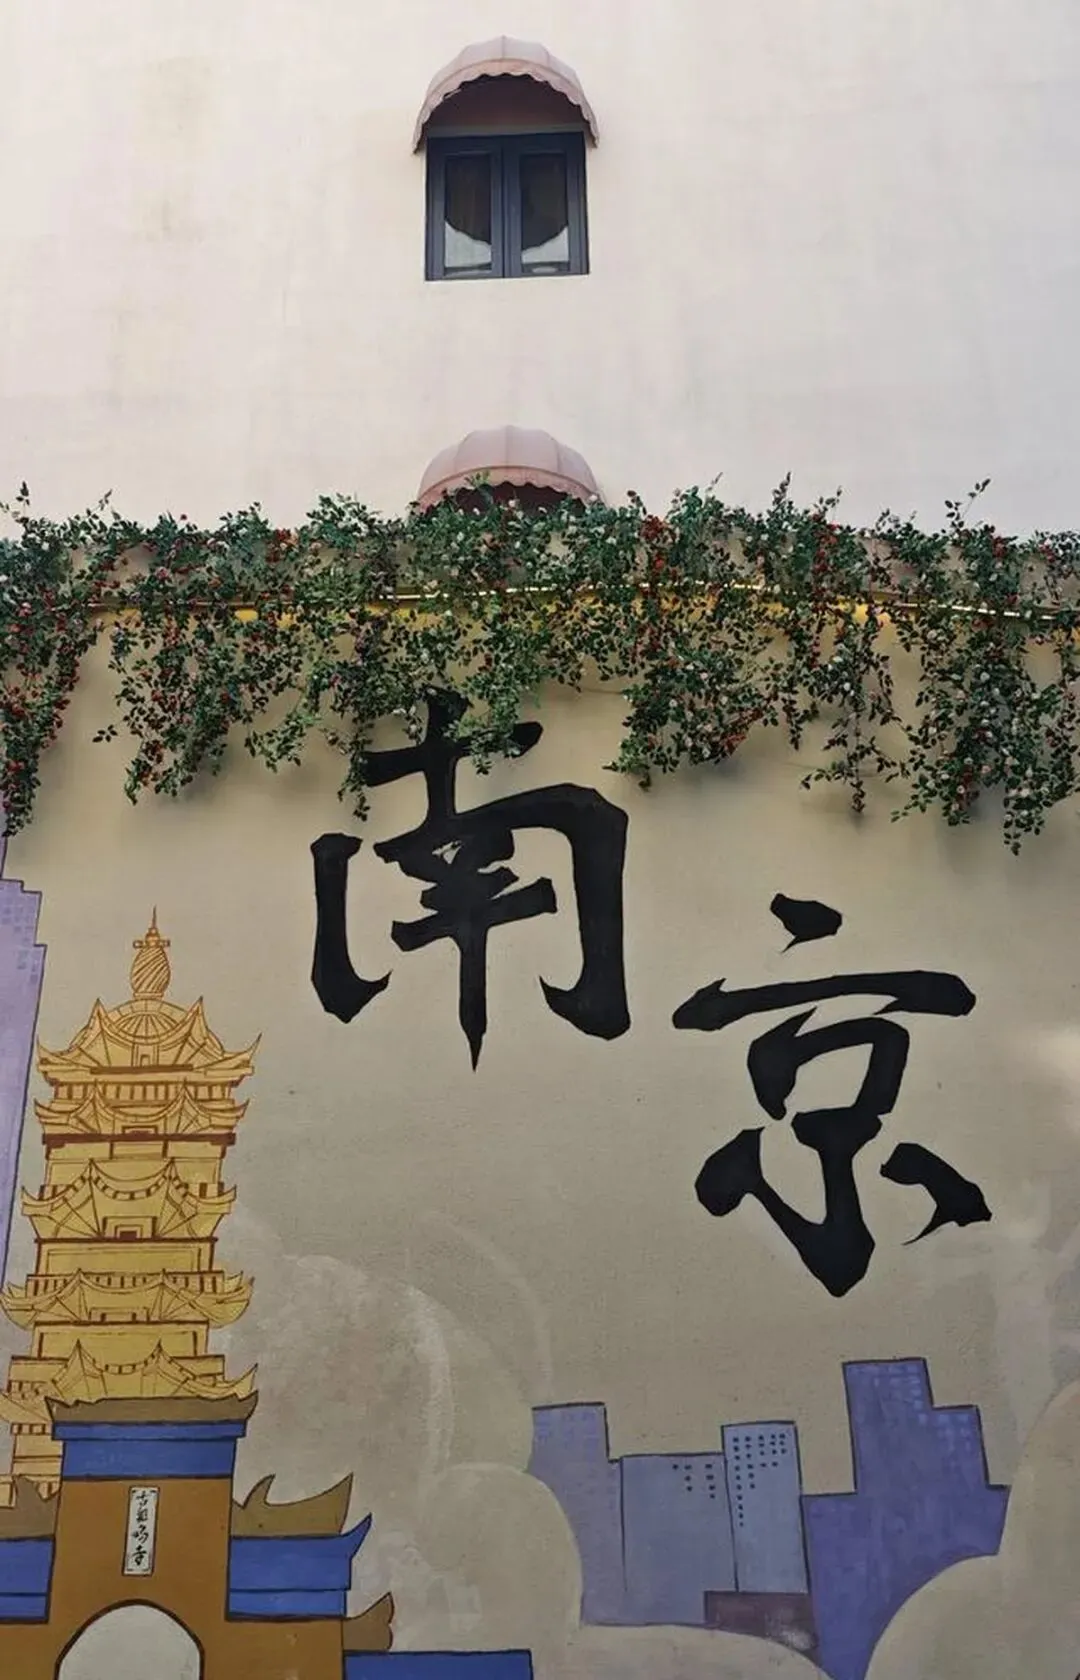 南京
古鸡鸣寺